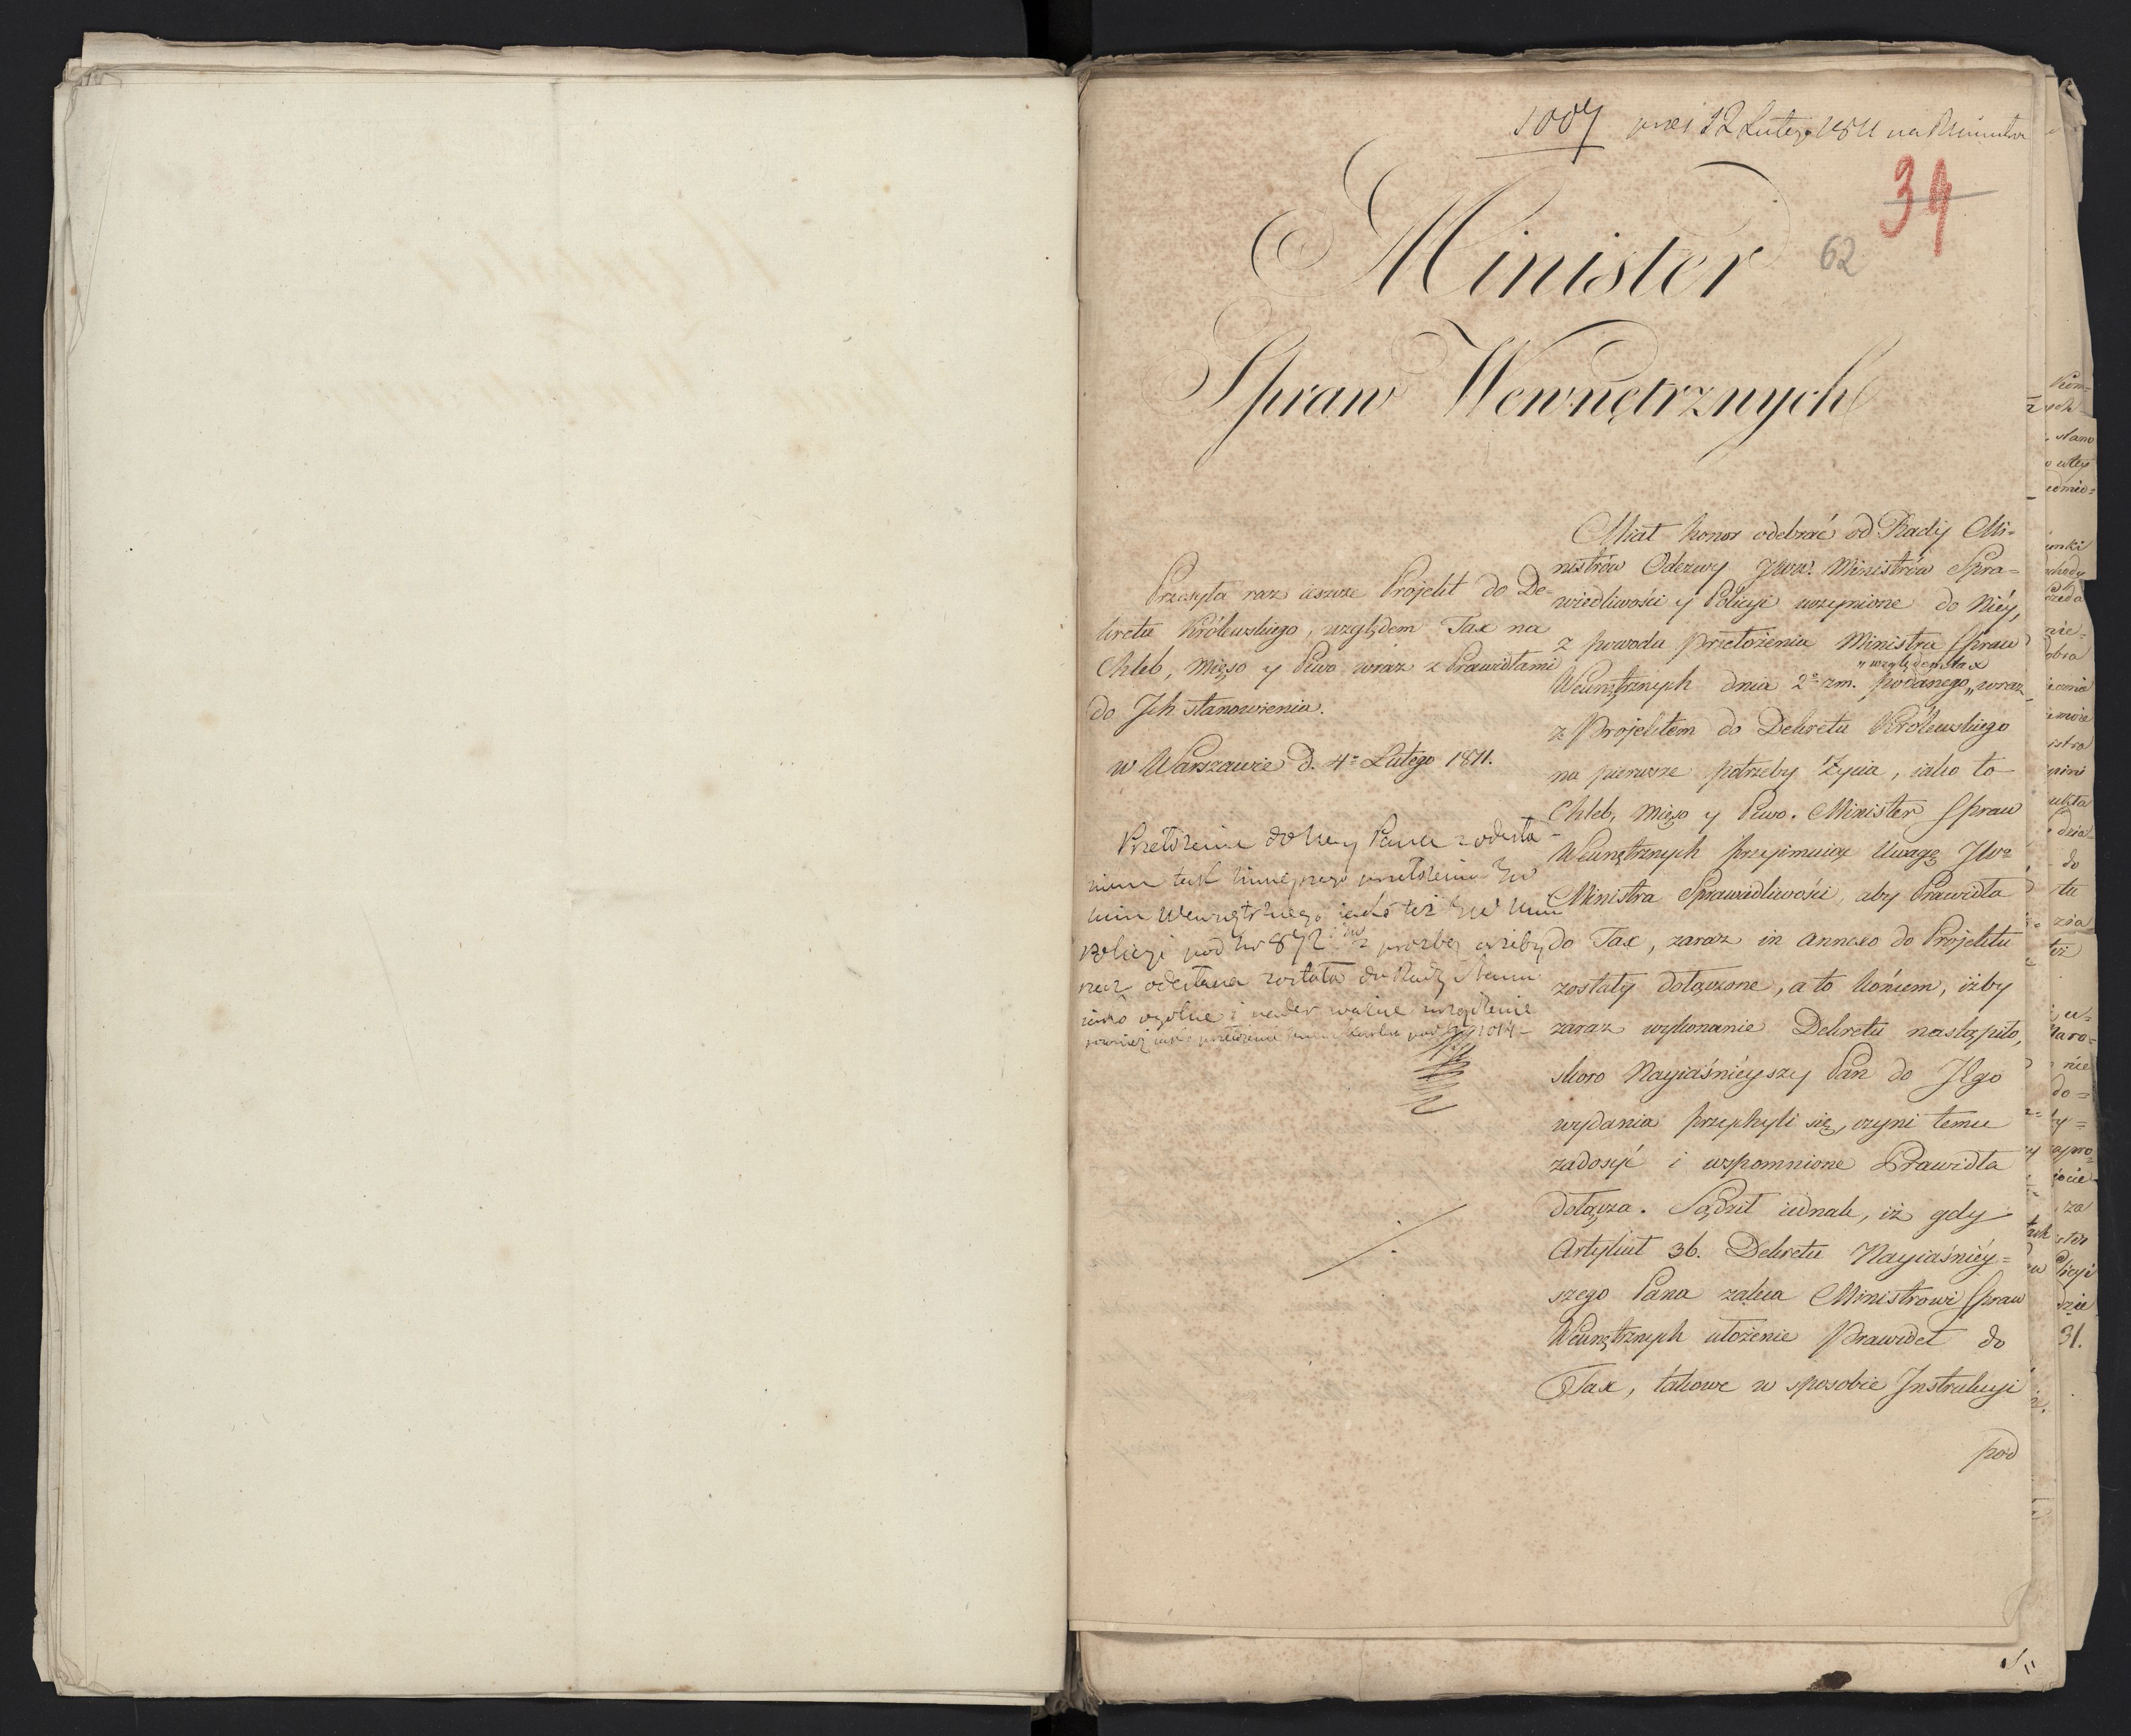 1007 12 Lutego 1811 na
34
62
Minister
Spraw Wewnętrznych
Przesyła raz ieszcze Projekt do De-
kretu Królewskiego, względem Tax na
Chleb, Mięso y Piwo wraz z Prawidłami
do Ich stanowienia.
w Warszawie D. 4º Lutego 1811.
Przełożenie do Pana
tak ninieyszego przełożenia
Wewnętrznego iako też
Policyi pod 872 z prozbą ażeby
rzecz odesłana została do Rady Stanu
iako ogólne i nader ważne urządzenie
również iako przełożenie pod 1014
Miał honor odebrać od Rady Mi=
nistrów Odezwy JWW. Ministrów Spra=
wiedliwości y Policyi uczynione do Niéy,
z powodu Przełożenia Ministra Spraw
Wewnętrznych dnia 2º zm. podanego „ wraz
„ względem tax
z Projektem do Dekretu Królewskiego
na pierwsze potrzeby Życia, iako to
Chleb, Mięso y Piwo. Minister Spraw
Wewnętrznych przyjmuiąc Uwagę JWº
Ministra Sprawiedliwości, aby Prawidła
do Tax, zaraz in annexo do Projektu
zostały dołączone, a to końcem, iżby
zaraz wykonanie Dekretu nastąpiło,
skoro Nayiaśnieyszy Pan do Jego
wydania przychyli się, czyni temu
zadosyć i wspomnione Prawidła
dołącza. Sądził iednak, iż gdy
Artykuł 36. Dekretu Nayiaśniéy=
szego Pana zaleca Ministrowi Spraw
Wewnętrznych ułożenie Prawideł do
Tax, takowe w sposobie Instrukcyi
pod